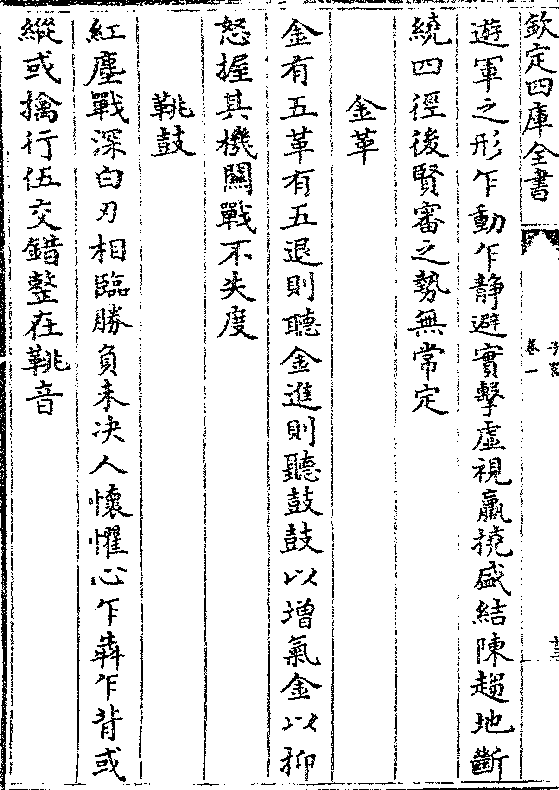 欽定四庫全書
卷一
遊軍之形乍動乍静避實擊虚視羸撓盛結陳趨地斷
繞四徑後賢審之勢無常定
金革
金有五革有五退則聽金進則聽鼓鼓以增氣金以抑
怒握其機關戰不失度
鞉鼓
紅塵戰深白刃相臨勝負未决人懷懼心乍犇乍背或
縱或擒行伍交錯整在鞉音